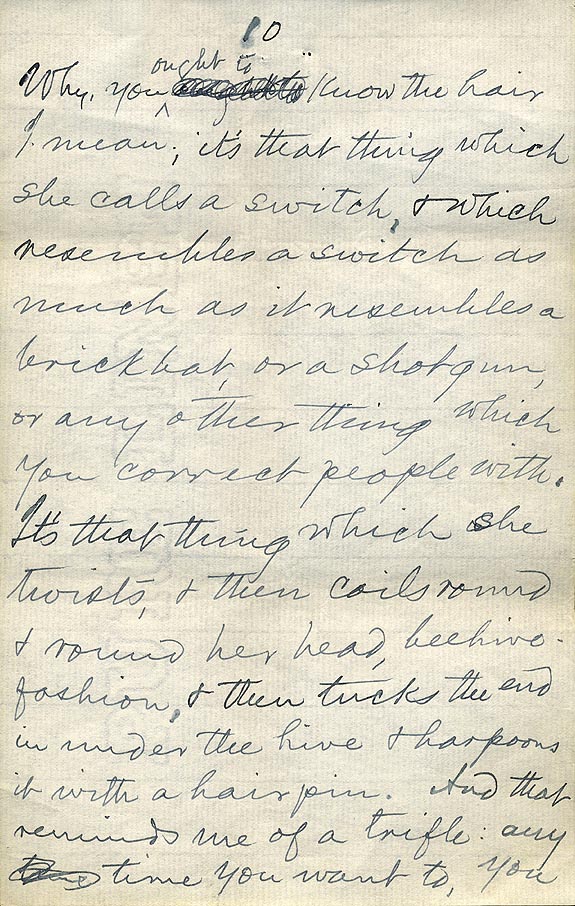 10
ought to
Why, you know the hair
I mean; it's that thing which
she calls a switch, & which
resembles a switch as
much as it resembles a
brickbat, or a shotgun,
or any other thing which
you correct people with.
It's that thing which she
twists, & then coils round
& round her head, beehive-
fashion, & then tucks the end
in under the hive & harpoons
it with a hairpin. And that
reminds me of a trifle: any
time you want to, you